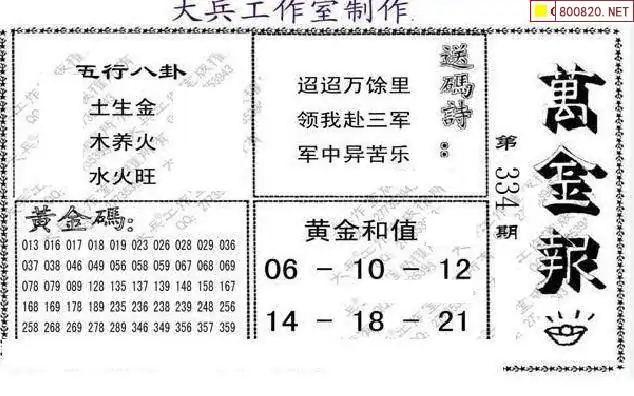 大兵工作室制作
800820.NET
五行八卦
土生金
木养火
水火旺
送码詩：
迢迢万馀里
领我赴三军
军中异苦乐
萬金报
第334期
黄金碼：
013 016 017 018 019 023 026 028 029 036
037 038 046 049 056 058 059 067 068 069
078 079 089 128 135 137 139 148 158 167
168 169 178 189 235 238 239 248 256
258 268 269 278 289 346 349 356 357 359
黄金和值
06 - 10 - 12
14 - 18 - 21